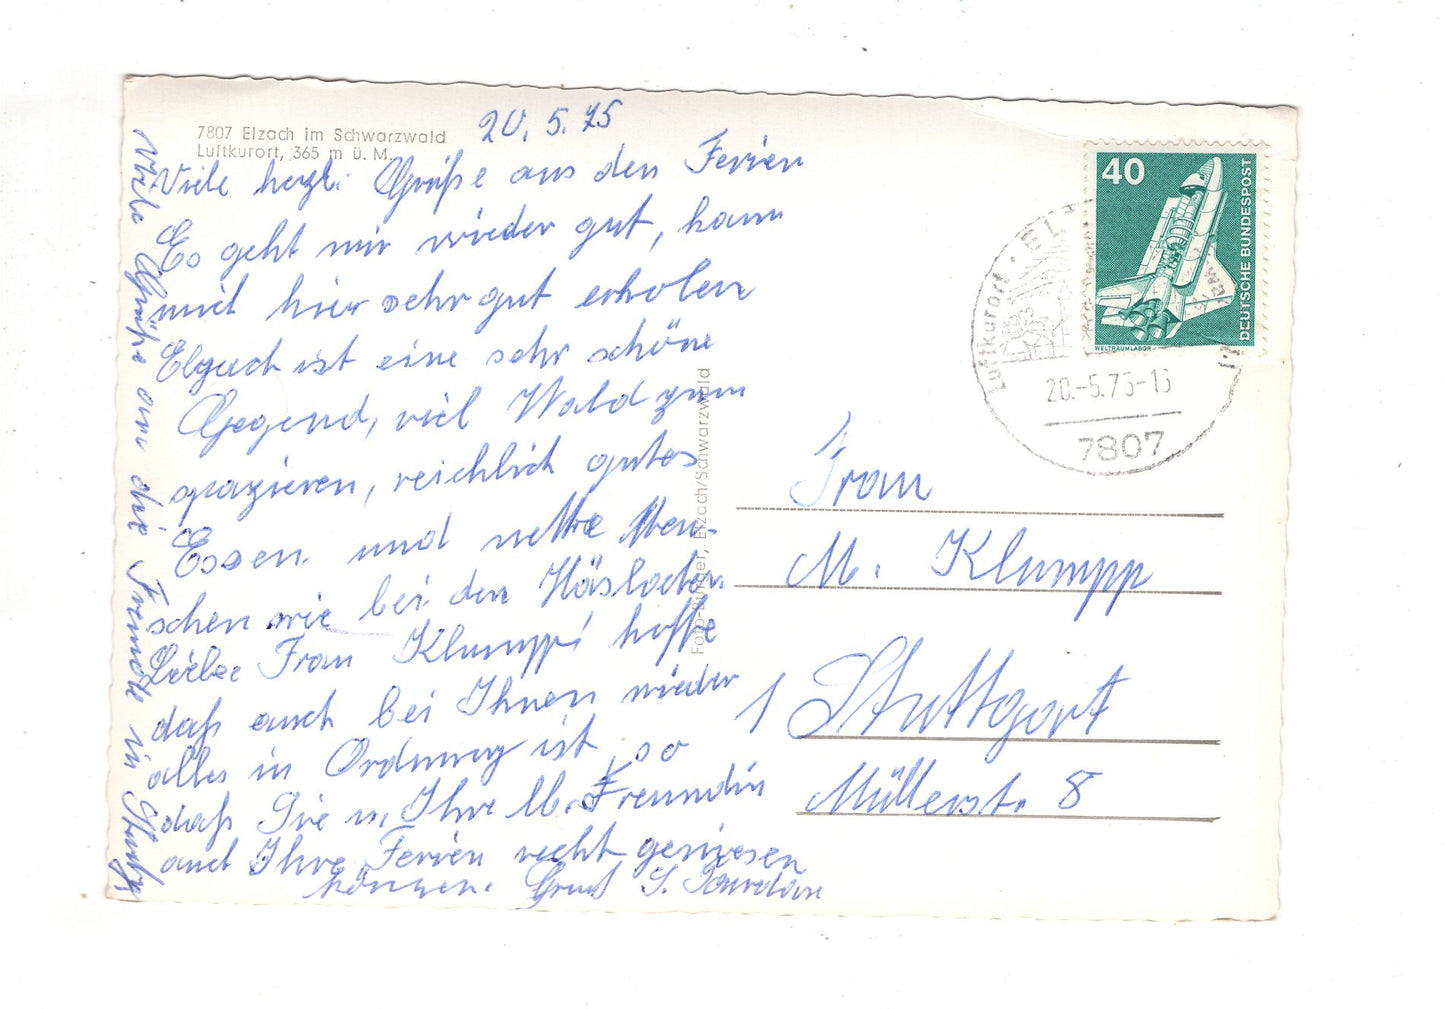 7807 Elzach im Schwarzwald
Luftkurort, 365 m ü. M.
20. 5. 75
Viele herzl. Grüße aus den Ferien
Es geht mir wieder gut, kann
mich hier sehr gut erholen
Elzach ist eine sehr schöne
Gegend, viel Wald zum
spazieren, reichlich gutes
Essen. und nette Men-
schen wie bei den
Liebe Frau Klumpp! hoffe
daß auch bei Ihnen wieder
alles in Ordnung ist, so
daß Sie u. Ihre lb. Freundin
auch Ihre Ferien recht geniesen
können. Gruß S.
Viele Grüße an die Freunde in Stuttg.
Foto-Burger, Elzach/Schwarzwald
40
DEUTSCHE BUNDESPOST
WELTRAUMLABOR
Luftkurort · EL
20.-5.75-
7807
Frau
M. Klumpp
1 Stuttgart
Müllerst. 8